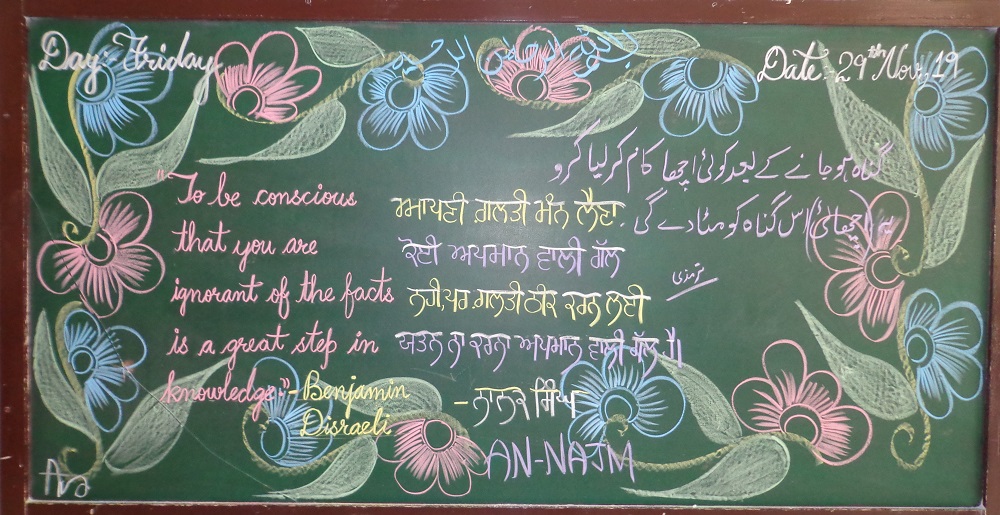 Day:- Friday
Date:- 29th Nov, 19
گناہ ہو جانے کے بعد کوئی اچھا کام کر لیا کرو
یہ اچھائی اس گناہ کو مٹا دے گی۔
ترمذی
"To be conscious
that you are
ignorant of the facts
is a great step in
knowledge."- Benjamin
Disraeli
ਆਪਣੀ ਗ਼ਲਤੀ ਮੰਨ ਲੈਣਾ
ਕੋਈ ਅਪਮਾਨ ਵਾਲੀ ਗੱਲ
ਨਹੀਂ, ਪਰ ਗ਼ਲਤੀ ਠੀਕ ਕਰਨ ਲਈ
ਯਤਨ ਨਾ ਕਰਨਾ ਅਪਮਾਨ ਵਾਲੀ ਗੱਲ ਹੈ।
- ਨਾਨਕ ਸਿੰਘ
AN-NAJM